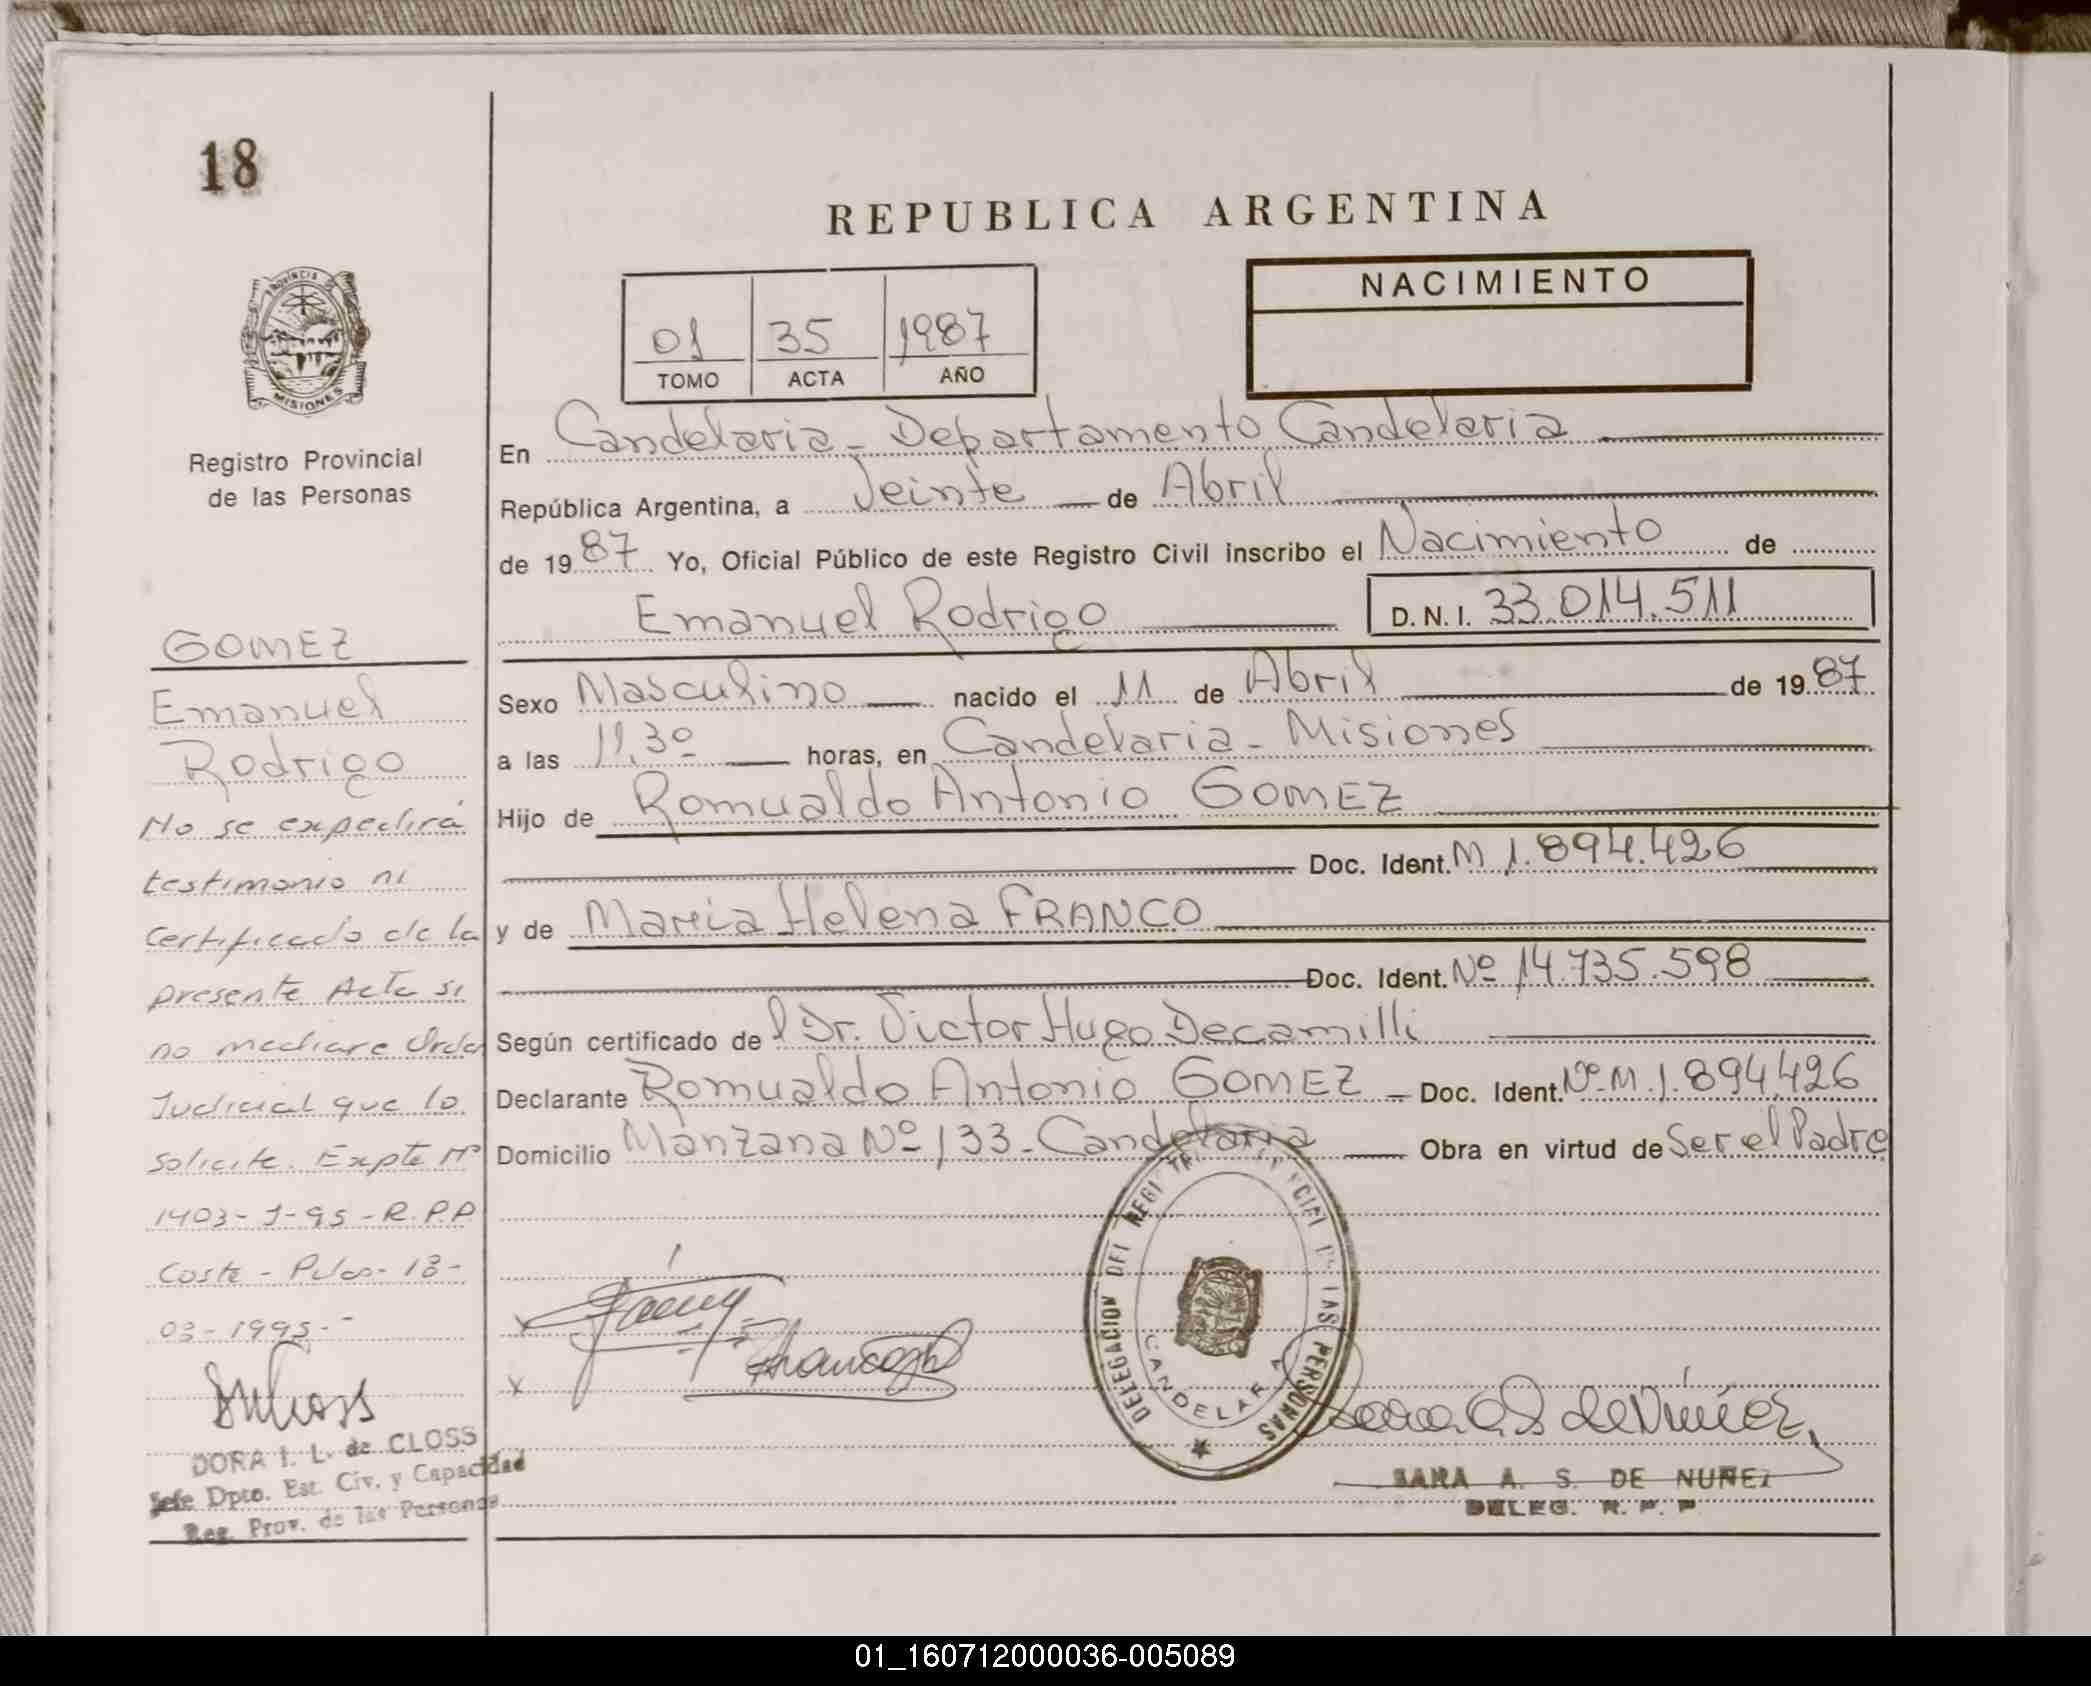 18
REPUBLICA ARGENTINA
NACIMIENTO
01 35 1987
TOMO ACTA AÑO
PROVINCIA DE
MISIONES
Registro Provincial
de las Personas
GOMEZ
Emanuel
Rodrigo
No se expedirá
testimonio ni
Certificado de la
presente Acta si
no mediare Orden
Judicial que lo
solicite. Expte Nº
1403-J-95-R.P.P
Coste - Pdas- 13-
03-1995--
DORA I. L. de CLOSS
Jefe Dpto. Est. Civ. y Capacidad
Reg. Prov. de las Personas
En Candelaria - Departamento Candelaria
República Argentina, a Veinte de Abril
de 1987 Yo, Oficial Público de este Registro Civil inscribo el Nacimiento de
Emanuel Rodrigo D.N.I. 33.014.511
Sexo Masculino nacido el 11 de Abril de 1987
a las 11,30 horas, en Candelaria - Misiones
Hijo de Romualdo Antonio GOMEZ
Doc. Ident. M 1.894.426
y de María Helena FRANCO
Doc. Ident. Nº 14.735.598
Según certificado de l Dr. Victor Hugo Decamilli
Declarante Romualdo Antonio GOMEZ - Doc. Ident. Nº M.1.894.426
Domicilio Manzana Nº 133 - Candelaria Obra en virtud de Ser el Padre
DELEGACION DEL REGISTRO PROVINCIAL DE LAS PERSONAS
CANDELARIA
Sara A S de Núñez
SARA A. S. DE NUÑEZ
DELEG. R. P. P.
01_160712000036-005089